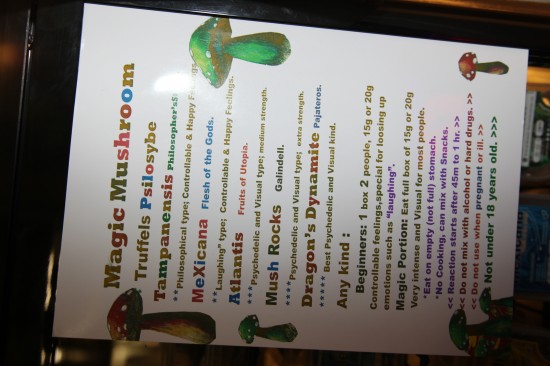 Magic Mushroom
Truffels Psilosybe
Tampanensis Philosopher's
**Philosophical type; Controllable & Happy Feelings
MeXicana Flesh of the Gods.
**Laughing" type; Controllable & Happy Feelings.
Atlantis Fruits of Utopia.
***Psychedelic and Visual type; medium strength.
Mush Rocks Galindell.
****Psychedelic and Visual type; extra strength.
Dragon's Dynamite Pajateros.
***** Best Psychedelic and Visual kind.
Any kind :
Beginners: 1 box 2 people, 15g or 20g
Controllable feelings,special for loosing up
emotions such as "laughing".
Magic Portion: Eat full box of 15g or 20g
Very intense and Visual for most people.
*Eat on empty (not full) stomach.
*No Cooking, can mix with Snacks.
<< Reaction starts after 45m to 1 hr. >>
<< Do not mix with alcohol or hard drugs. >>
<< Do not use when pregnant or ill. >>
<<< Not under 18 years old. >>>